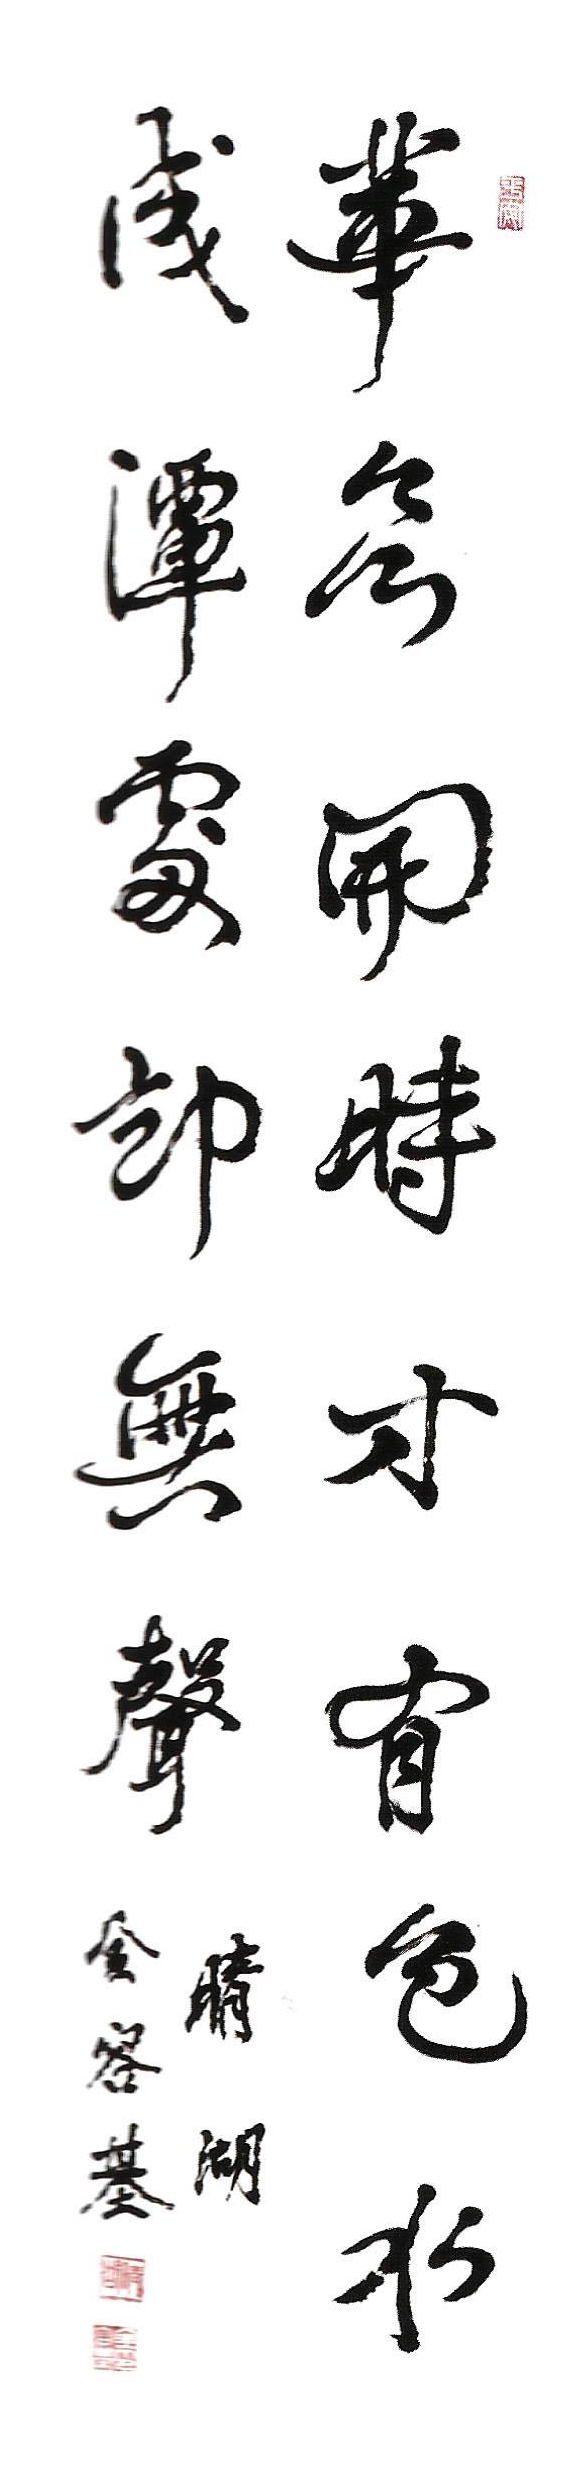 華含開時才有色水
成潭處却無聲
晴湖
金容基